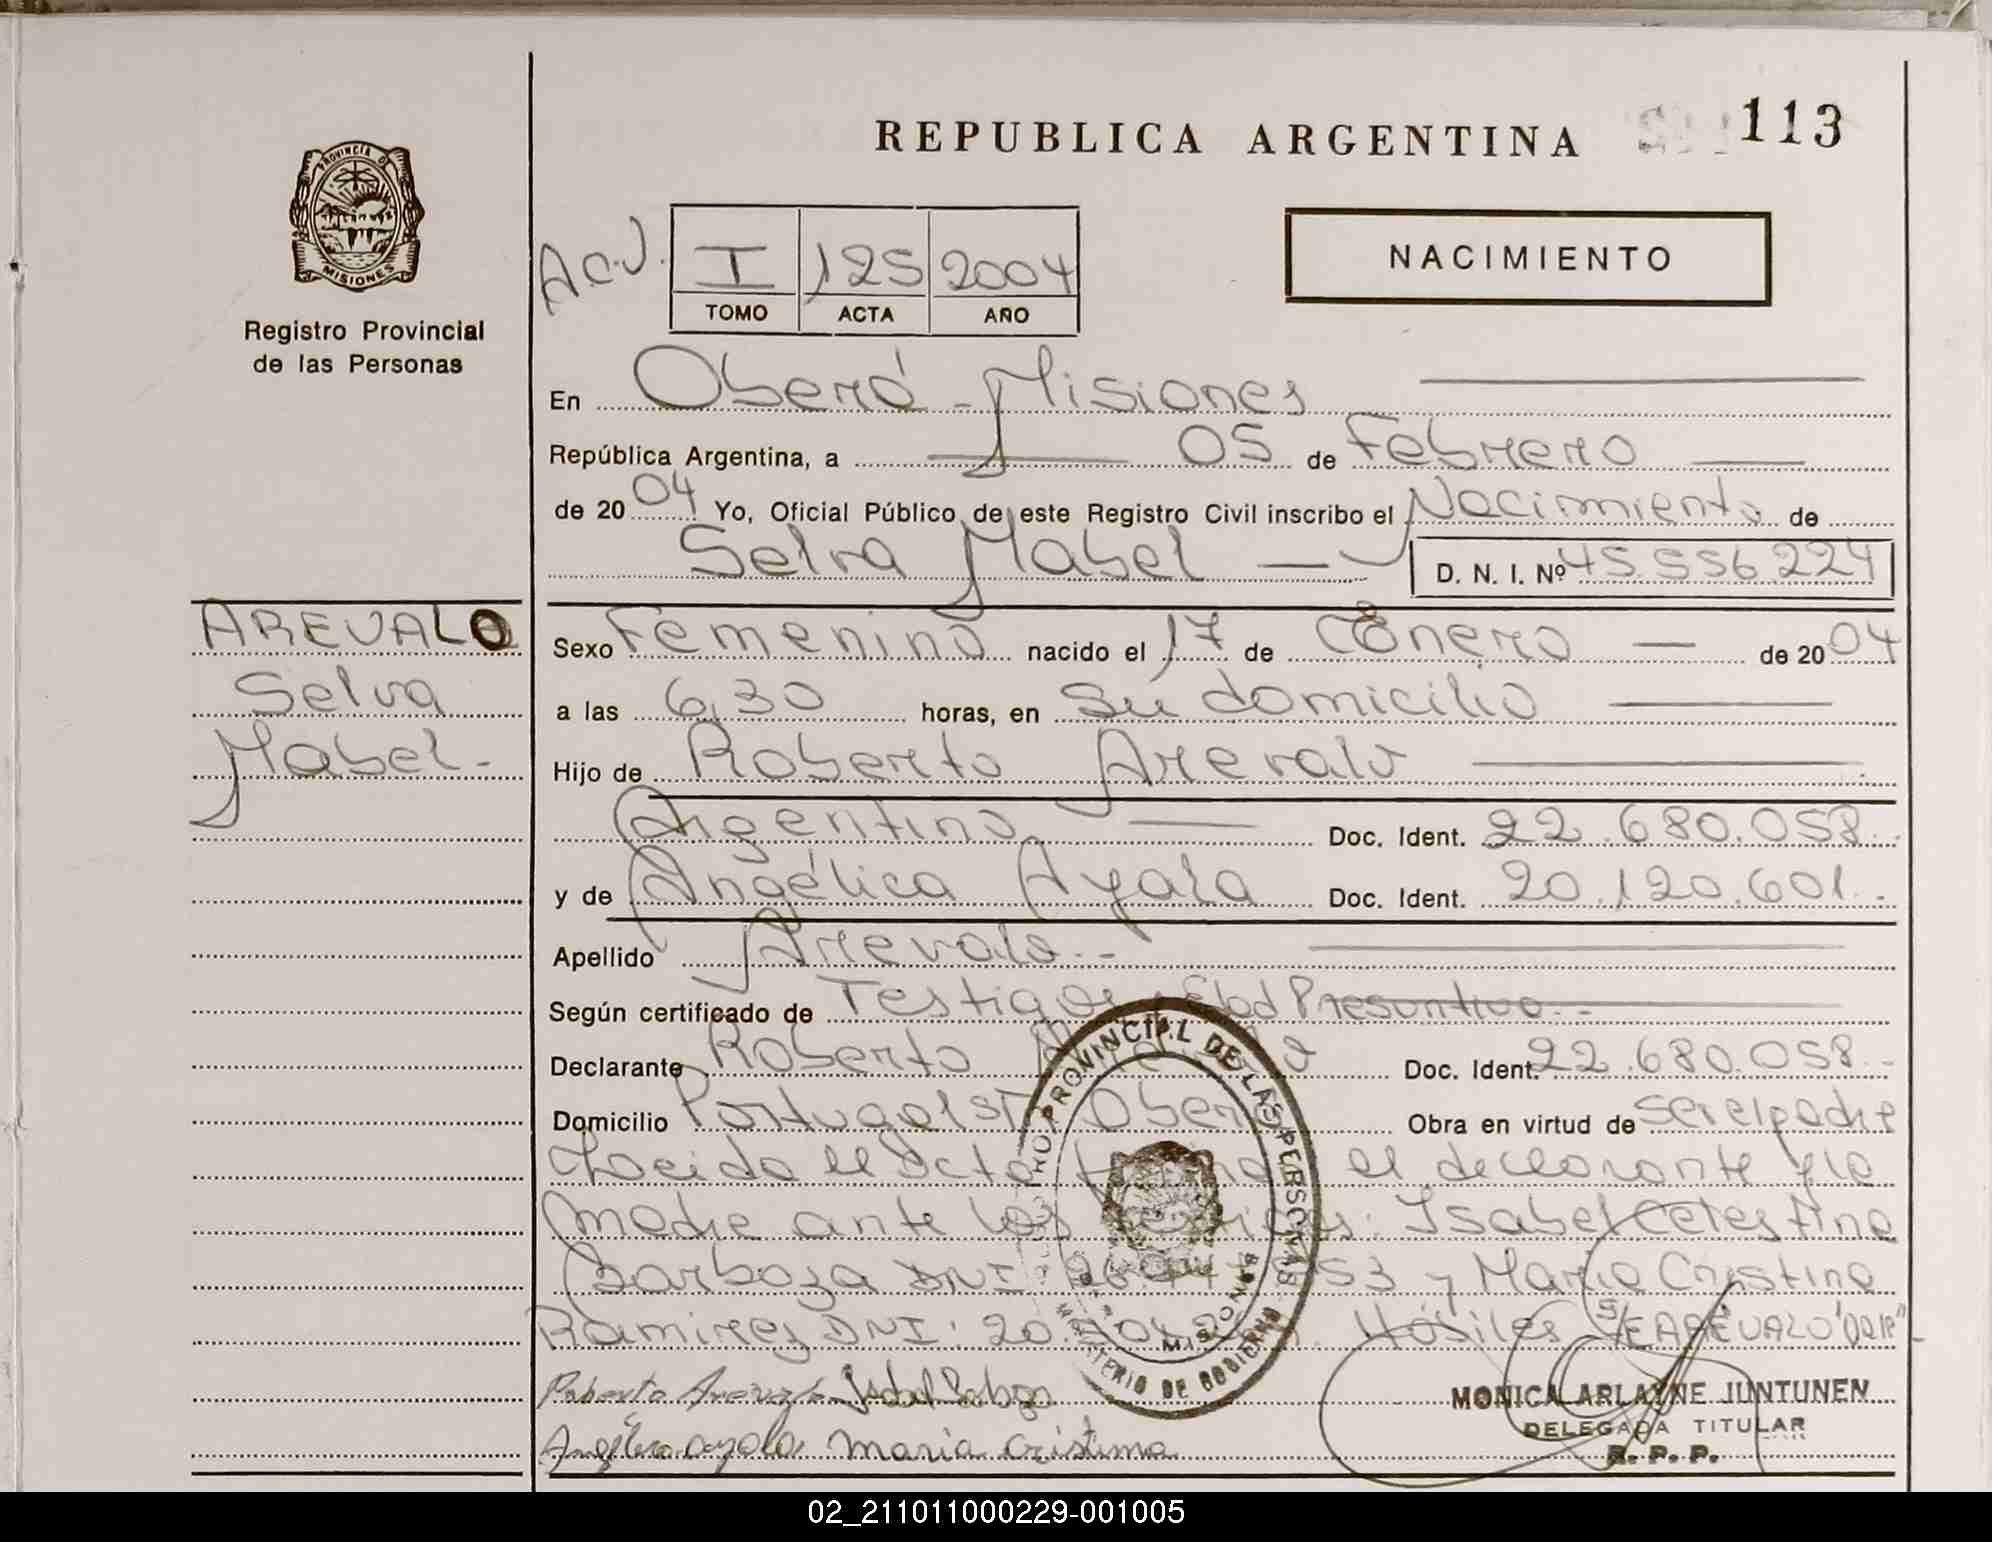 REPUBLICA ARGENTINA 113
PROVINCIA DE
MISIONES
Registro Provincial
de las Personas
A.C.J. I 125 2004
TOMO ACTA AÑO
NACIMIENTO
En Oberá - Misiones
República Argentina, a 05 de Febrero
de 20 04 Yo, Oficial Público de este Registro Civil inscribo el Nacimiento de
Selva Mabel D. N. I. Nº 45.556.224
AREVALO
Selva
Mabel.-
Sexo Femenino nacido el 17 de Enero de 20 04
a las 6,30 horas, en su domicilio
Hijo de Roberto Arevalo
Argentino Doc. Ident. 22.680.058.-
y de Angélica Ayala Doc. Ident. 20.120.601.-
Apellido Arevalo.-
Según certificado de Testigos y Edad Presuntiva.-
Declarante Roberto Doc. Ident. 22.680.058.-
Domicilio Portugal Oberá Obra en virtud de ser el padre
Leida el Acta el declarante y la
Madre ante los testigos: Isabel Celestina
Barboza DNI 53 y Maria Cristina
Ramirez DNI: 20. Hábiles S/E AREVALO "VALE"-
Roberto Arevalo Isabel Barboza
Angélica ayala maria cristina
REGISTRO PROVINCIAL DE LAS PERSONAS
MISIONES
MINISTERIO DE GOBIERNO
MONICA ARLAYNE JUNTUNEN
DELEGADA TITULAR
R. P. P.
02_211011000229-001005